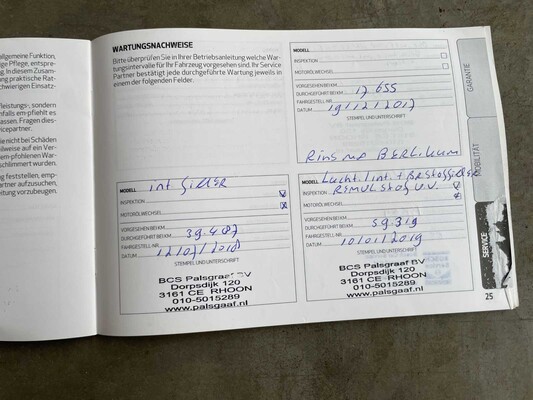 allgemeine Funktion,
ige Pflege, entspre-
ng. In diesem Zusam-
ng praktische Rat-
chwierigen Einsatz-
fleistungs-, sondern
nfalls em-pfiehlt es
assen. Fragen dies-
vicepartner.
nie bei Schäden
eilweise auf ein Ver-
em-pfohlenen War-
schlimmert wurden.
ng feststellen, emp-
artner aufzusuchen,
eitung vorzubeugen.
WARTUNGSNACHWEISE
Bitte überprüfen Sie in Ihrer Betriebsanleitung welche War-
tungsintervalle für Ihr Fahrzeug vorgesehen sind. Ihr Service
Partner bestätigt jede durchgeführte Wartung jeweils in
einem der folgenden Felder.
MODELL
INSPEKTION
MOTORÖLWECHSEL
VORGESEHEN BEI KM
DURCHGEFÜHRT BEI KM 17 655
FAHRGESTELL NR.
DATUM 19/12/2017
STEMPEL UND UNTERSCHRIFT
MODELL int filter
INSPEKTION
MOTORÖLWECHSEL
VORGESEHEN BEI KM
DURCHGEFÜHRT BEI KM 39.487
FAHRGESTELL NR.
DATUM 12/07/2018
STEMPEL UND UNTERSCHRIFT
BCS Palsgraaf BV
Dorpsdijk 120
3161 CE RHOON
010-5015289
www.palsgaaf.nl
MODELL Lucht. int. + Brstoffilter
INSPEKTION REMULstof V.V.
MOTORÖLWECHSEL
VORGESEHEN BEI KM
DURCHGEFÜHRT BEI KM 59.319
FAHRGESTELL NR.
DATUM 10/01/2019
STEMPEL UND UNTERSCHRIFT
BCS Palsgraaf BV
Dorpsdijk 120
3161 CE RHOON
010-5015289
www.palsgaaf.nl
GARANTIE
MOBILITÄT
SERVICE
25